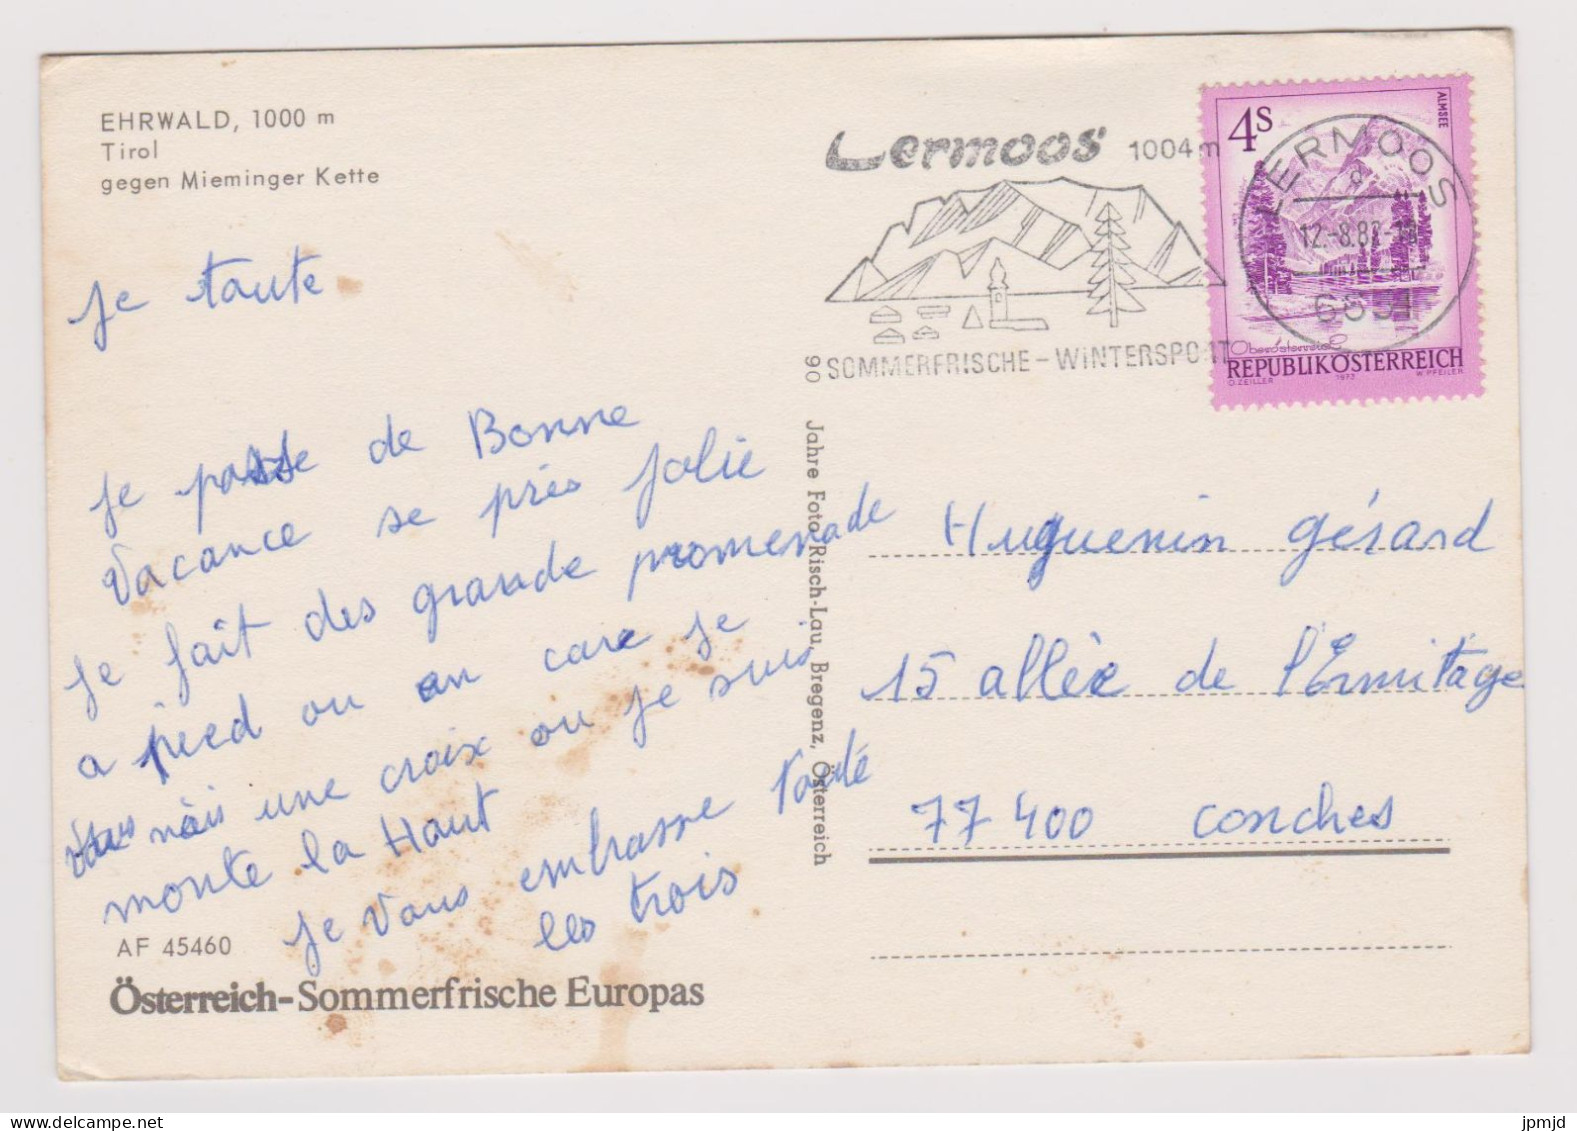 EHRWALD, 1000 m
Tirol
gegen Mieminger Kette
Lermoos 1004 m
SOMMERFRISCHE - WINTERSPORT
4S
ALMSEE
LERMOOS
12.-8.82-18
6631
Oberösterreich
REPUBLIK ÖSTERREICH
O. ZEILLER 1973 W. PFEILER
je taute
je passe de Bonne
Vacance se près jolie
je fait des grande promenade
a pied ou en care je
une croix ou je suis
monte la Haut
je vous embrasse touté
les trois
AF 45460
Österreich-Sommerfrische Europas
90 Jahre Foto Risch-Lau, Bregenz, Österreich
Huguenin Gérard
15 allée de l'Ermitage
77400 conches
jpmjd